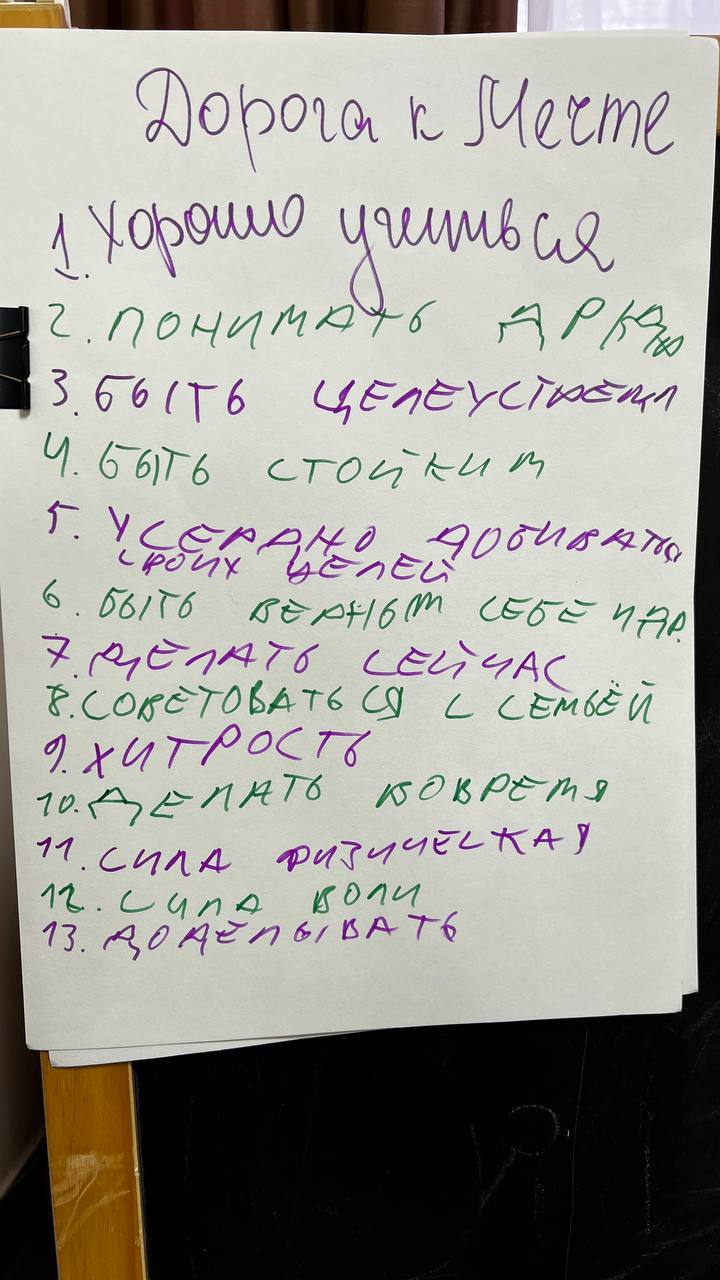 Дорога к Мечте
1. Хорошо учиться
2. ПОНИМАТЬ
3. БЫТЬ ЦЕЛЕУСТРЕМЛ
4. БЫТЬ СТОЙКИМ
5. УСЕРДНО ДОБИВАТЬСЯ
СВОИХ ЦЕЛЕЙ
6. БЫТЬ ВЕРНЫМ СЕБЕ И ДР.
7. ДЕЛАТЬ СЕЙЧАС
8. СОВЕТОВАТЬСЯ С СЕМЬЁЙ
9. ХИТРОСТЬ
10. ДЕЛАТЬ ВОВРЕМЯ
11. СИЛА ФИЗИЧЕСКАЯ
12. СИЛА ВОЛИ
13. ДОДЕЛЫВАТЬ